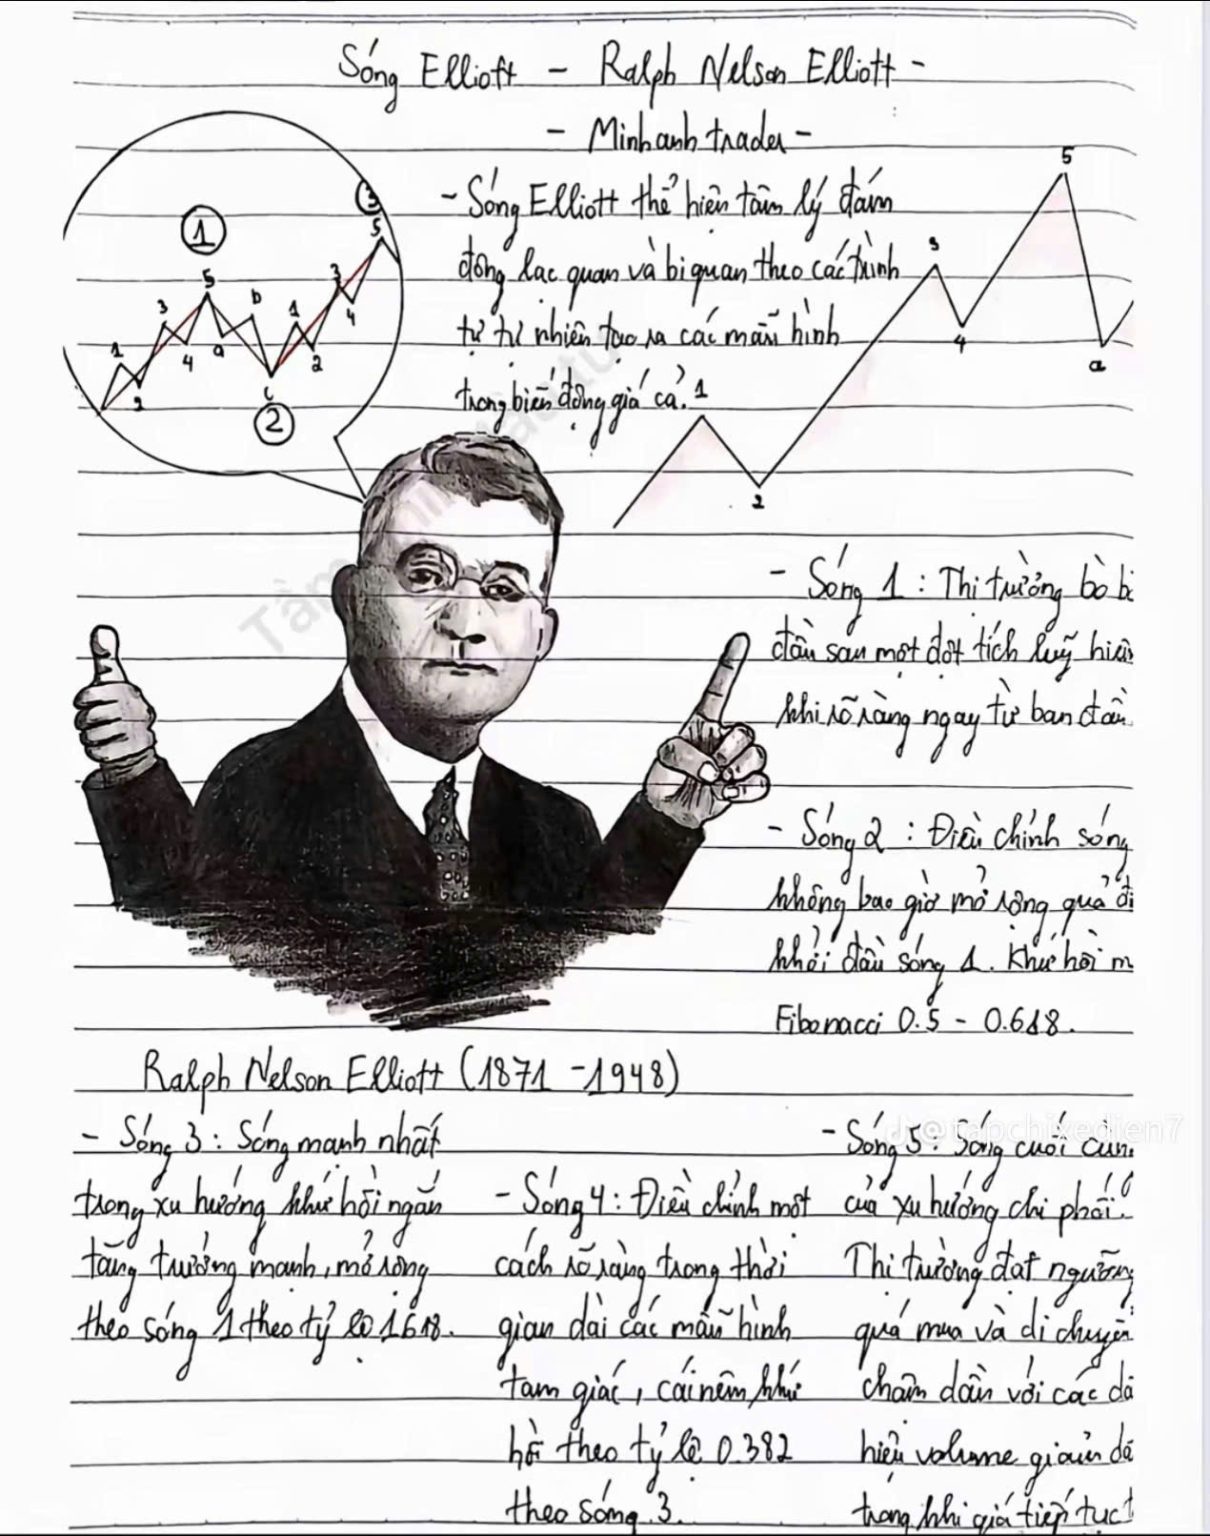 Sóng Elliott - Ralph Nelson Elliott -
- Minh anh trader -
- Sóng Elliott thể hiện tâm lý đám
đông lạc quan và bi quan theo các trình
tự tự nhiên tạo ra các mẫu hình
trong biến động giá cả.
1
3
5
1
2
3
4
5
a
b
c
2
1
2
3
4
5
3
1
2
3
4
5
a
- Sóng 1 : Thị trường bò b
đầu sau một đợt tích luỹ hiếm
khi rõ ràng ngay từ ban đầu.
- Sóng 2 : Điều chỉnh sóng
không bao giờ mở rộng quá đi
khởi đầu sóng 1. Khứ hồi m
Fibonacci 0.5 - 0.618.
Ralph Nelson Elliott (1871 - 1948)
- Sóng 3 : Sóng mạnh nhất
trong xu hướng khứ hồi ngắn
tăng trưởng mạnh, mở rộng
theo sóng 1 theo tỷ lệ 1.618.
- Sóng 4 : Điều chỉnh một
cách rõ ràng trong thời
gian dài các mẫu hình
tam giác, cái nêm khứ
hồi theo tỷ lệ 0.382
theo sóng 3.
- Sóng 5 : Sóng cuối cùn
của xu hướng chi phối.
Thị trường đạt ngưỡng
quá mua và di chuyển
chậm dần với các dấ
hiệu volume giảm dầ
trong khi giá tiếp tục t
@tapchixedien7